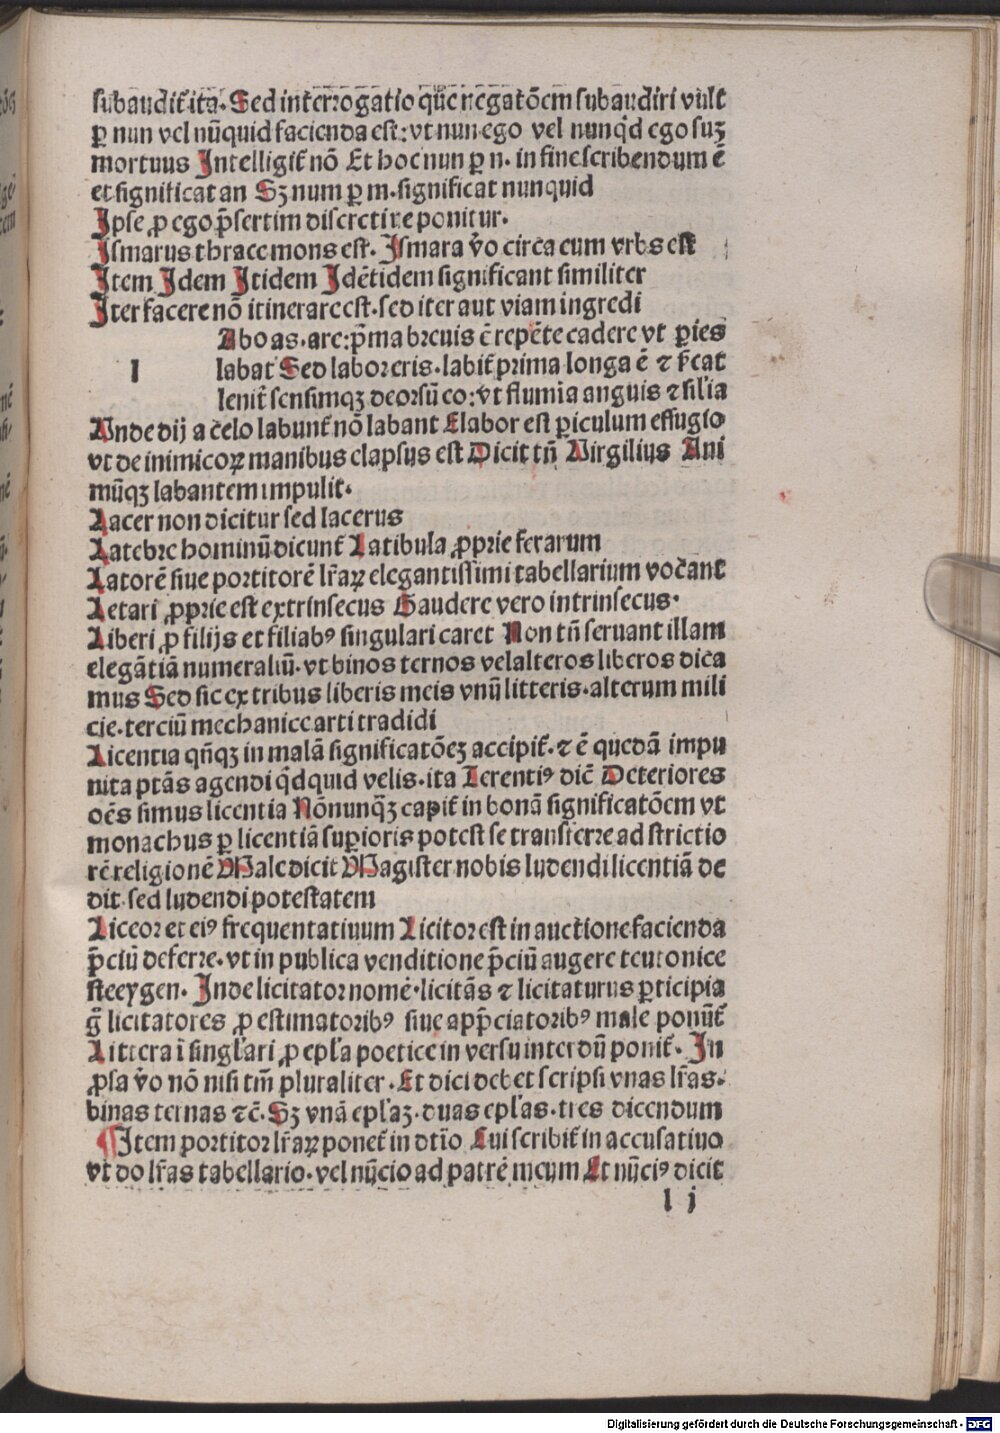 subaudit̃ ita. Sed interrogatio que negatōem subaudiri vult
ꝑ nun vel nūquid facienda est: vt nun ego vel nunq̄d ego suꝫ
mortuus Intelligit̃ nō Et hoc nun ꝑ n. in fine scribendum ē
et significat an Sꝫ num ꝑ m. significat nunquid
Ipse ꝓ ego p̄sertim discretiue ponitur.
Ismarus thrace mons est. Ismara v̄o circa eum vrbs est
Item Idem Itidem Idētidem significant similiter
Iter facere nō itinerare est. sed iter aut viam ingredi
Abo as. are: p̄ma breuis ē repēte cadere vt ꝑies
l labat Sed labor eris. labit̃ prima longa ē ⁊
lenit̃ sensimqꝫ deorsū eo: vt flumīa anguis ⁊ silia
Vnde dij a celo labunt̃ nō labant Elabor est ꝑiculum effugio
vt de inimicoꝝ manibus elapsus est Dicit tn̄ Virgilius Ani
mūqꝫ labantem impulit.
Lacer non dicitur sed lacerus
Latebre hominū dicunt̃ Latibula ꝓprie ferarum
Latorē siue portitorē lr̄aꝝ elegantissimi tabellarium vocant
Letari ꝓprie est extrinsecus Gaudere vero intrinsecus.
Liberi ꝓ filijs et filiabꝰ singulari caret Non tn̄ seruant illam
elegātiā numeraliū. vt binos ternos vel alteros liberos dica
mus Sed sic ex tribus liberis meis vnū litteris. alterum mili
cie. terciū mechanice arti tradidi
Licentia qn̄qꝫ in malā significatōeꝫ accipit̃. ⁊ ē quedā impu
nita ptās agendi q̄dquid velis. ita Terentiꝰ dic̄ Deteriores
oēs simus licentia Nōnunqꝫ capit̃ in bonā significatōem vt
monachus ꝑ licentiā suꝑioris potest se transferre ad strictio
rē religionē Male dicit Magister nobis ludendi licentiā de
dit. sed ludendi potestatem
Liceor et eiꝰ frequentatiuum Licitor est in auctione facienda
p̄ciū deferre. vt in publica venditione p̄ciū augere teutonice
steeygen. Inde licitator nomē. licitās ⁊ licitaturus ꝑticipia
g̃ licitatores ꝓ estimatoribꝰ siue app̄ciatoribꝰ male ponūt̃
Littera ī singl'ari ꝓ epl'a poetice in versu interdū ponit̃. In
ꝓsa v̄o nō nisi tm̄ pluraliter. Et dici debet scripsi vnas lr̄as.
binas ternas ⁊c̄. Sꝫ vnā epl'aꝫ. duas epl'as. tres dicendum
¶ Item portitor lr̄aꝝ ponet̃ in dtīo Cui scribit̃ in accusatiuo
vt do lr̄as tabellario. vel nūcio ad patrē meum Et nūciꝰ dicit
l j
Digitalisierung gefördert durch die Deutsche Forschungsgemeinschaft - DFG